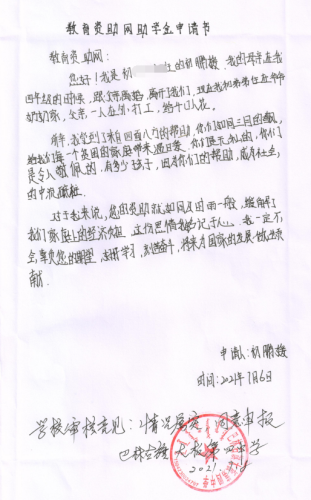 教育资助网助学金申请书
教育资助网:
您好!我是机 的机鹏媛,我的母亲在我
四年级的时候,跟父亲离婚,离开我们,现在我和弟弟住在爷爷
奶奶家,父亲一人在外打工,给一家四口人花。
前年,我受到了来自四面八方的帮助,你们如同三月的飘,
给我们每一个贫困的家庭带来温暖,你们是无私的,你们
是令人敬佩的,有多少孩子,因为你们的帮助,成为社会
的中流砥柱。
对于我来说,您的资助就如同及时雨一般,缓解了
我们家庭上的经济负担,这份恩情铭记于心。我一定不
会辜负您的期望,志存学习,刻苦奋斗,将来为国家的发展做出贡
献。
申请人:机鹏媛
时间:2021年7月6日
学校审核意见:情况属实,同意申报
巴林左旗 天 第四小学
2021.